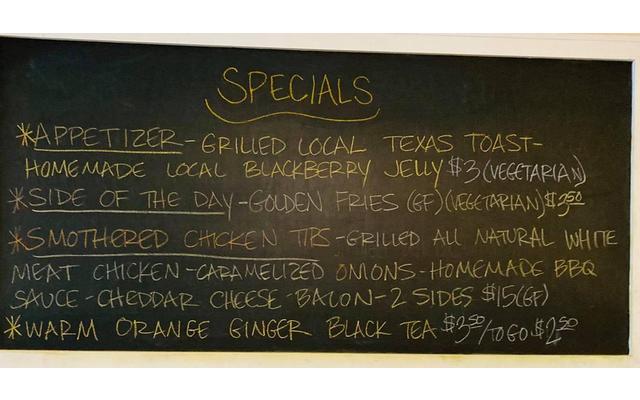 SPECIALS
*APPETIZER-GRILLED LOCAL TEXAS TOAST-
HOMEMADE LOCAL BLACKBERRY JELLY $3(VEGETARIAN)
*SIDE OF THE DAY-GOLDEN FRIES (GF)(VEGETARIAN)$3.50
*SMOTHERED CHICKEN TIPS-GRILLED ALL NATURAL WHITE
MEAT CHICKEN-CARAMELIZED ONIONS-HOMEMADE BBQ
SAUCE-CHEDDAR CHEESE-BACON-2 SIDES $15(GF)
*WARM ORANGE GINGER BLACK TEA $3.50/TO GO $2.50